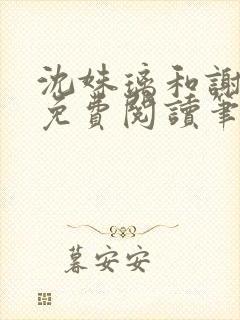 沈妹璃和謝
免費閱讀筆
暮安安